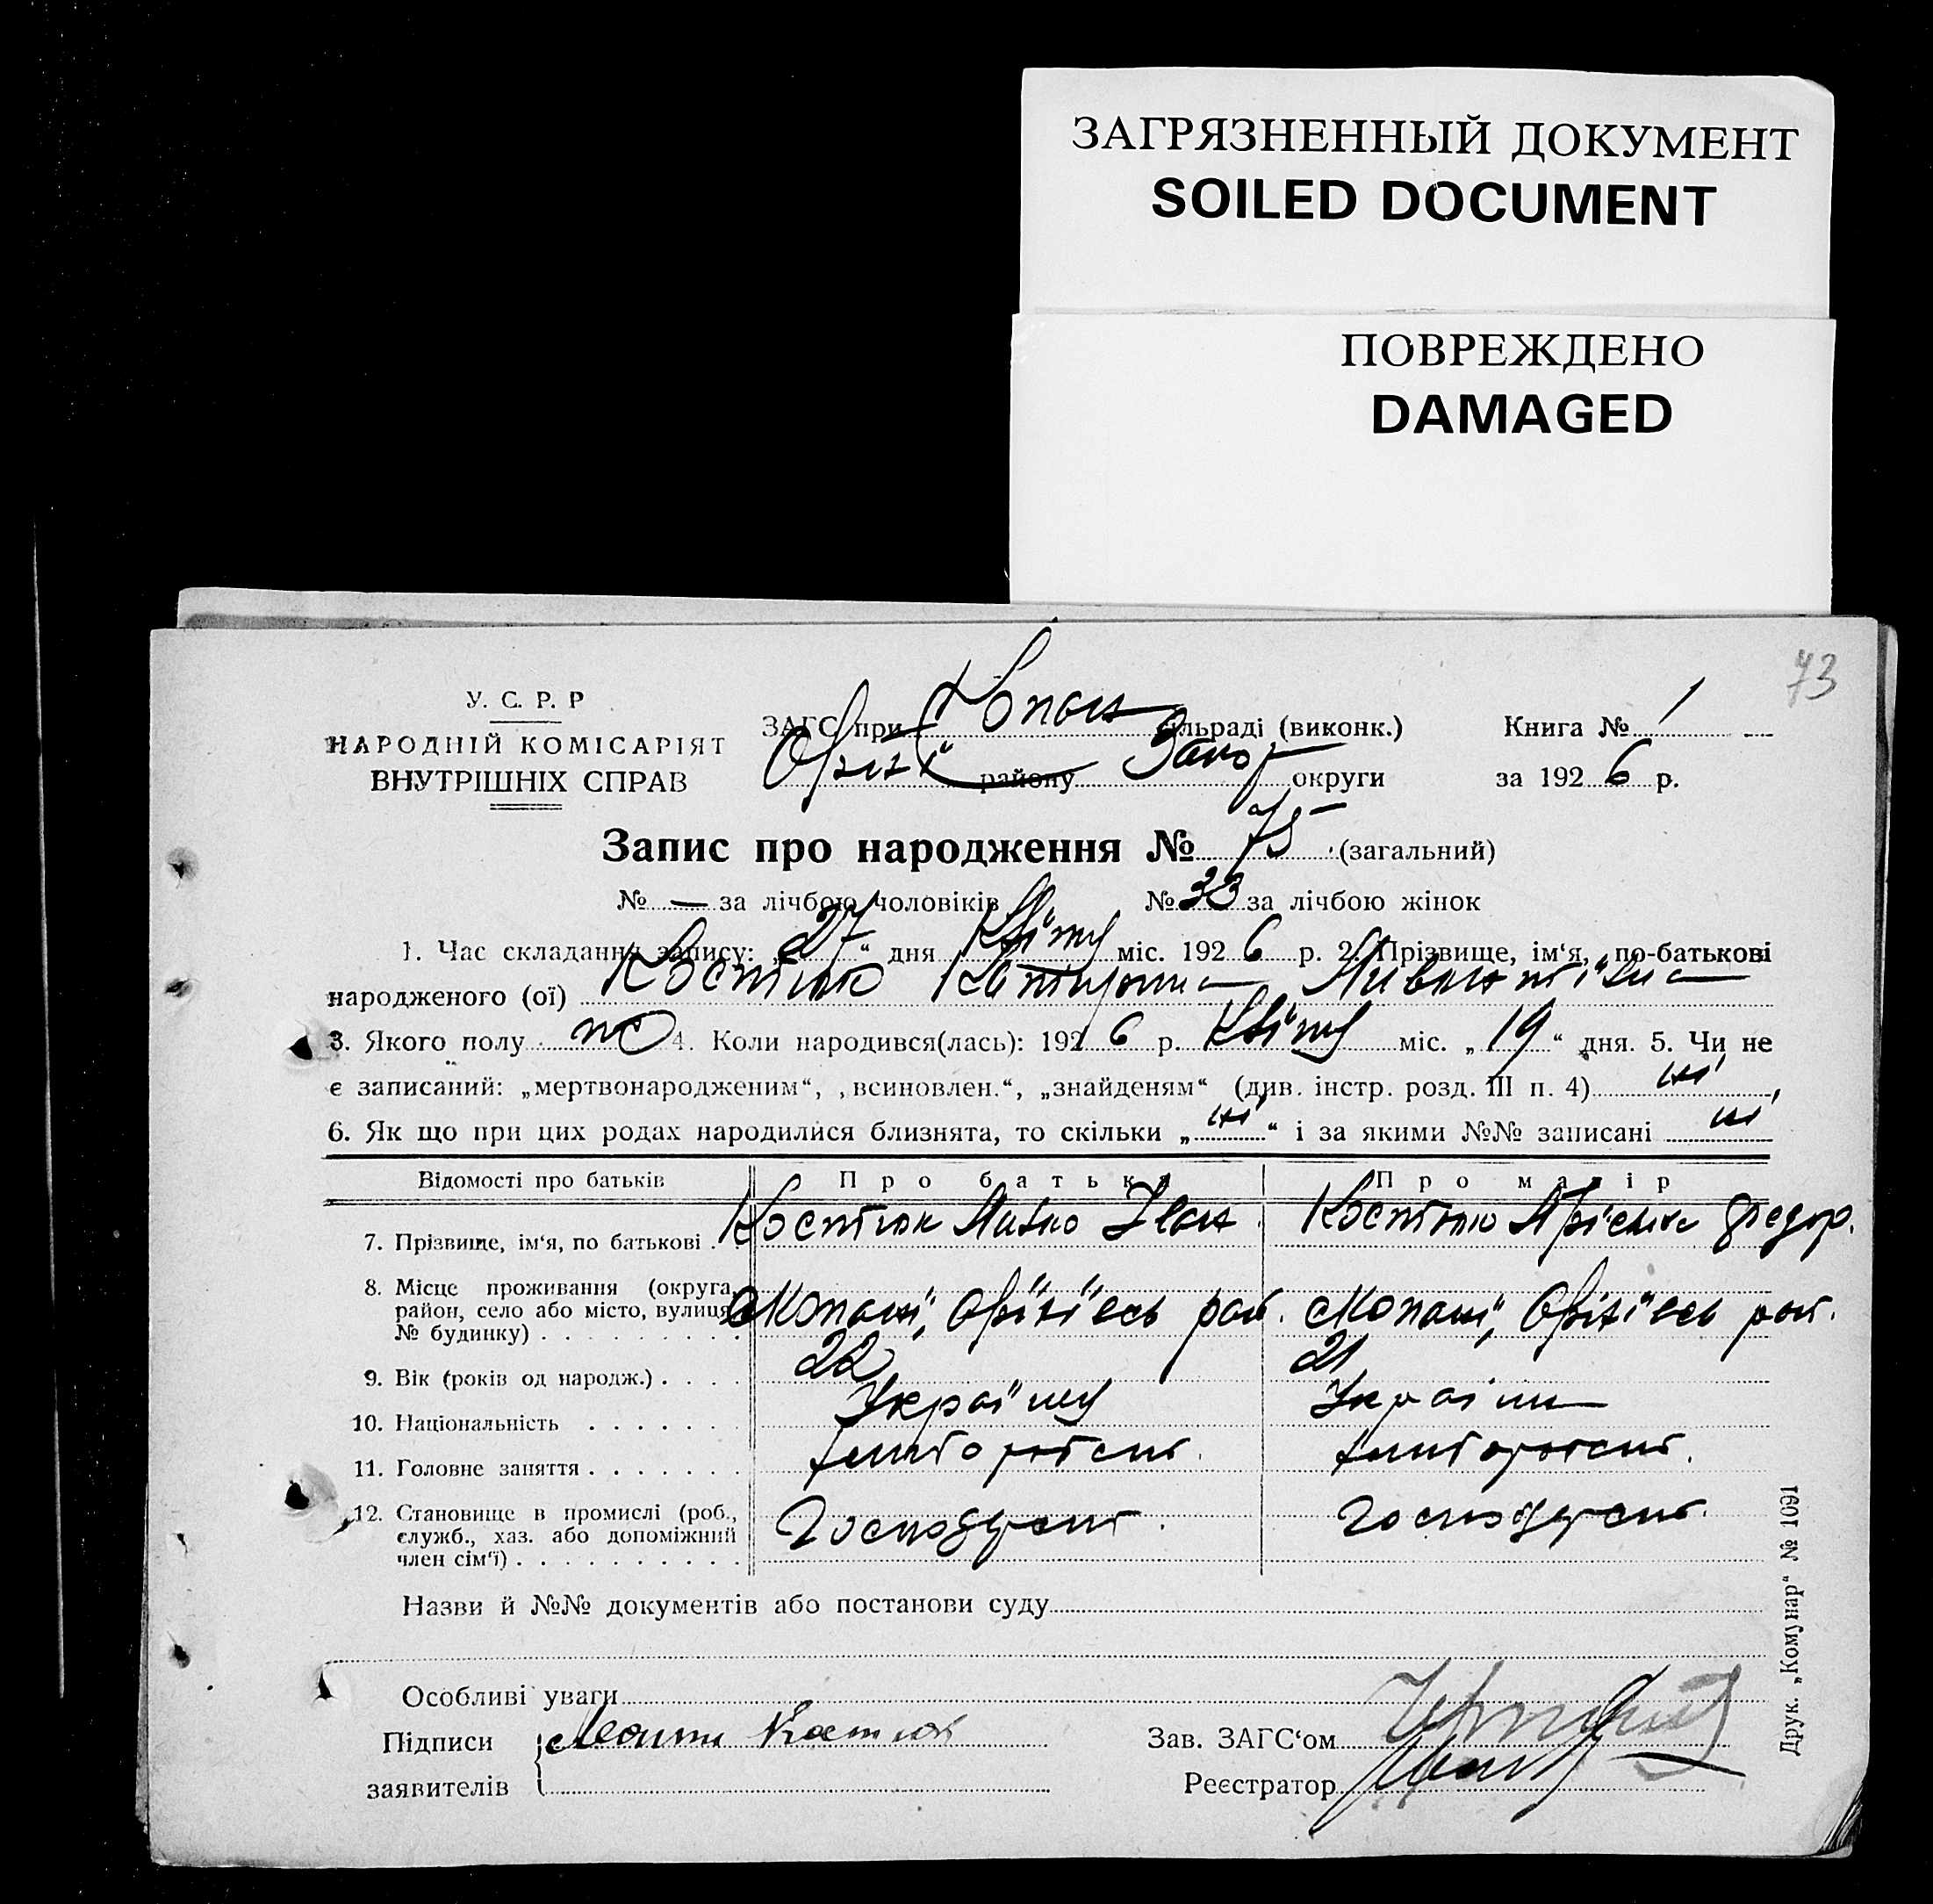 ЗАГРЯЗНЕННЫЙ ДОКУМЕНТ
SOILED DOCUMENT
ПОВРЕЖДЕНО
DAMAGED
73
У. С. Р. Р
НАРОДНІЙ КОМІСАРІЯТ
ВНУТРІШНІХ СПРАВ
ЗАГС при Копан сільраді (виконк.)
Оріхі району Запор округи
Книга № 1
за 1926 р.
Запис про народження № 75 (загальний)
№ — за лічбою чоловіків № 33 за лічбою жінок
1. Час складання запису: „27“ дня Квітня міс. 1926 р. 2. Прізвище, ім‘я, по-батькові
народженого (ої) Костюк Катерина
3. Якого полу 4. Коли народився(лась): 1926 р. Квітня міс. „19“ дня. 5. Чи не
є записаний: „мертвонародженим“, „всиновлен.“, „знайденям“ (див. інстр. розд. III п. 4) ні
6. Як що при цих родах народилися близнята, то скільки „ні“ і за якими №№ записані ні
Відомості про батьків Про батька Про матір
7. Прізвище, ім‘я, по батькові Костюк Іван Костюк Федор.
8. Місце проживання (округа,
район, село або місто, вулиця,
№ будинку) Копані, Оріхівсь рай. Копані, Оріхівсь рай.
9. Вік (років од народж.) 22 21
10. Національність Україн
11. Головне заняття хліборобств. хліборобств.
12. Становище в промислі (роб.,
служб., хаз. або допоміжний
член сім‘ї)
Назви й №№ документів або постанови суду
Особливі уваги
Підписи
заявителів
Костюк
Зав. ЗАГС‘ом
Реєстратор
Друк. „Комунар“ № 1091